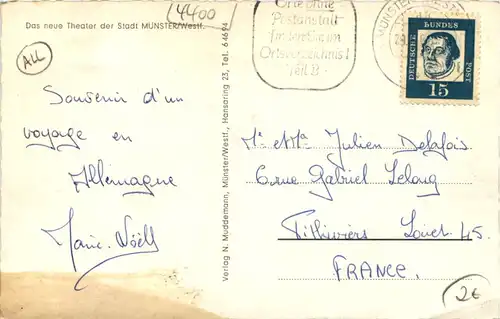 Das neue Theater der Stadt MÜNSTER/Westf.
4400
ALL
Souvenir d'un
voyage en
Allemagne
Marie-Noëlle
Verlag N. Muddemann, Münster/Westf., Hansaring 23, Tel. 64694
Orte ohne
Postanstalt
Ortsverzeichnis I
Teil II
MÜNSTER
DEUTSCHE BUNDES POST
15
Mr et Mme Julien Delafois
6 rue Gabriel Lelong
Pithiviers Loiret 45.
FRANCE.
2€